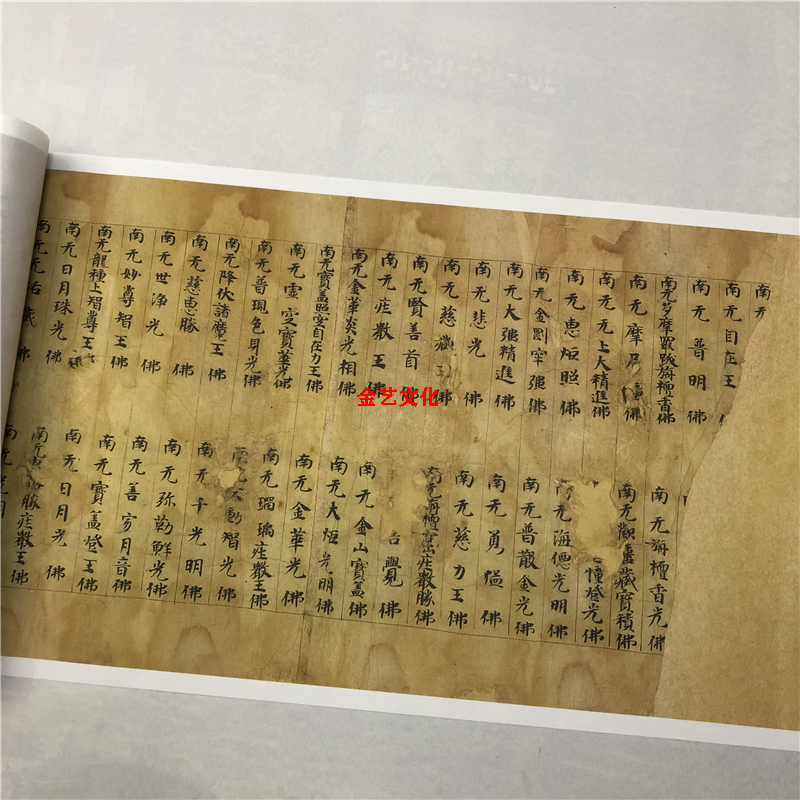 南无
南无自在王
南无普明佛
南无多摩羅跋旃檀香佛
南无摩尼佛
南无无上大精進佛
南无惠炬照佛
南无金剛牢强佛
南无大强精進佛
南无悲光佛
南无慈藏佛
南无賢善首佛
南无莊嚴王佛
南无金華炎光相佛
南无寶蓋照空自在力王佛
南无虛空寶華光佛
南无普現色身光佛
南无降伏諸魔王佛
南无慈惠勝佛
南无世淨光佛
南无妙尊智王佛
南无龍種上智尊王佛
南无日月珠光佛
南无佛
南无旃檀香光佛
南无歡喜藏寶積佛
幢燈光佛
南无海德光明佛
南无普散金光佛
南无勇猛佛
南无慈力王佛
旃檀莊嚴勝佛
覺佛
南无金山寶蓋佛
南无大炬光明佛
南无金華光佛
南无瑠璃莊嚴王佛
動智光佛
南无千光明佛
南无弥勒鮮光佛
南无善寂月音佛
南无寶蓋燈王佛
南无日月光佛
南无勝莊嚴王佛
南无
金艺文化